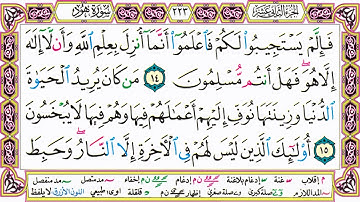 سورة هود ٢٢٣ الجزء الثاني عشر
فَإِلَّمْ يَسْتَجِيبُوا۟ لَكُمْ فَٱعْلَمُوٓا۟ أَنَّمَآ أُنزِلَ بِعِلْمِ ٱللَّهِ وَأَن لَّآ إِلَـٰهَ
إِلَّا هُوَ ۖ فَهَلْ أَنتُم مُّسْلِمُونَ ١٤ مَن كَانَ يُرِيدُ ٱلْحَيَوٰةَ
ٱلدُّنْيَا وَزِينَتَهَا نُوَفِّ إِلَيْهِمْ أَعْمَـٰلَهُمْ فِيهَا وَهُمْ فِيهَا لَا يُبْخَسُونَ
١٥ أُو۟لَـٰٓئِكَ ٱلَّذِينَ لَيْسَ لَهُمْ فِى ٱلْـَٔاخِرَةِ إِلَّا ٱلنَّارُ ۖ وَحَبِطَ